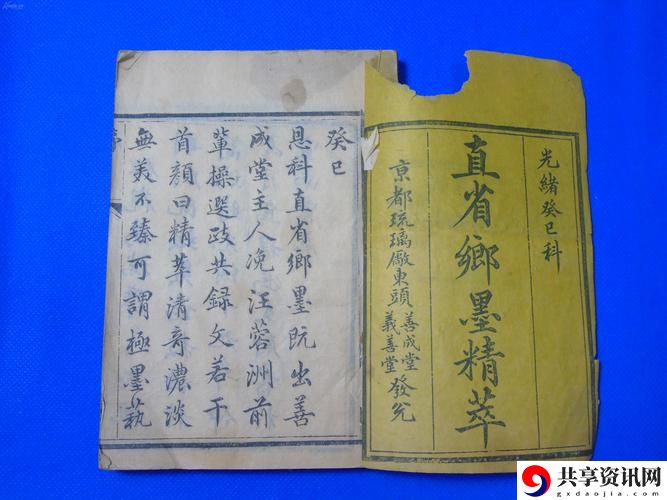 光緒癸巳科
直省鄉墨精萃
京都琉璃廠東頭
善成堂
義善堂
發兌
癸巳
恩科直省鄉墨既出善
成堂主人浼汪蓉洲前
輩操選政共錄文若干
首顏曰精萃清奇濃淡
無美不臻可謂極墨藝
共享资讯网
gxdaojia.com